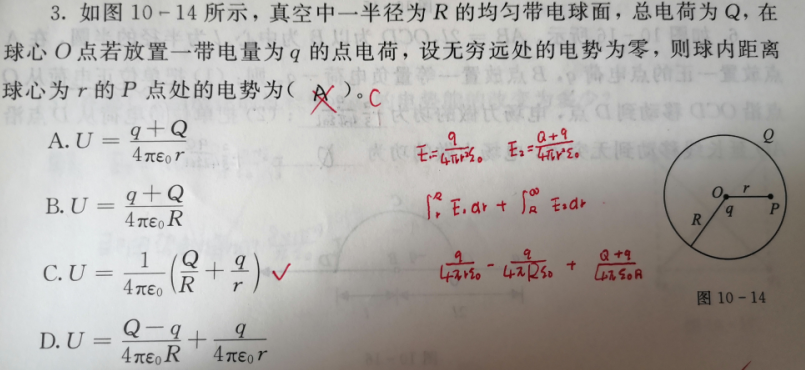 3. 如图 10-14 所示，真空中一半径为 R 的均匀带电球面，总电荷为 Q，在
球心 O 点若放置一带电量为 q 的点电荷，设无穷远处的电势为零，则球内距离
球心为 r 的 P 点处的电势为( A )。C
A. U = \frac{q+Q}{4πε₀r}
B. U = \frac{q+Q}{4πε₀R}
C. U = \frac{1}{4πε₀}(\frac{Q}{R} + \frac{q}{r}) ✓
D. U = \frac{Q-q}{4πε₀R} + \frac{q}{4πε₀r}
E₁=\frac{q}{4πr²ε₀} E₂=\frac{Q+q}{4πr²ε₀}
∫_r^R E₁dr + ∫_R^∞ E₂dr
\frac{q}{4πrε₀} - \frac{q}{4πRε₀} + \frac{Q+q}{4πε₀R}
Q
O r
R q P
图 10-14